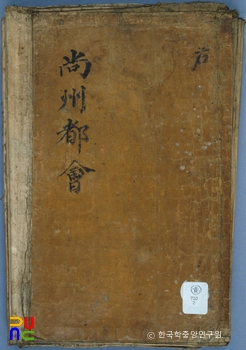 尚州都會
ⓒ 한국학중앙연구원